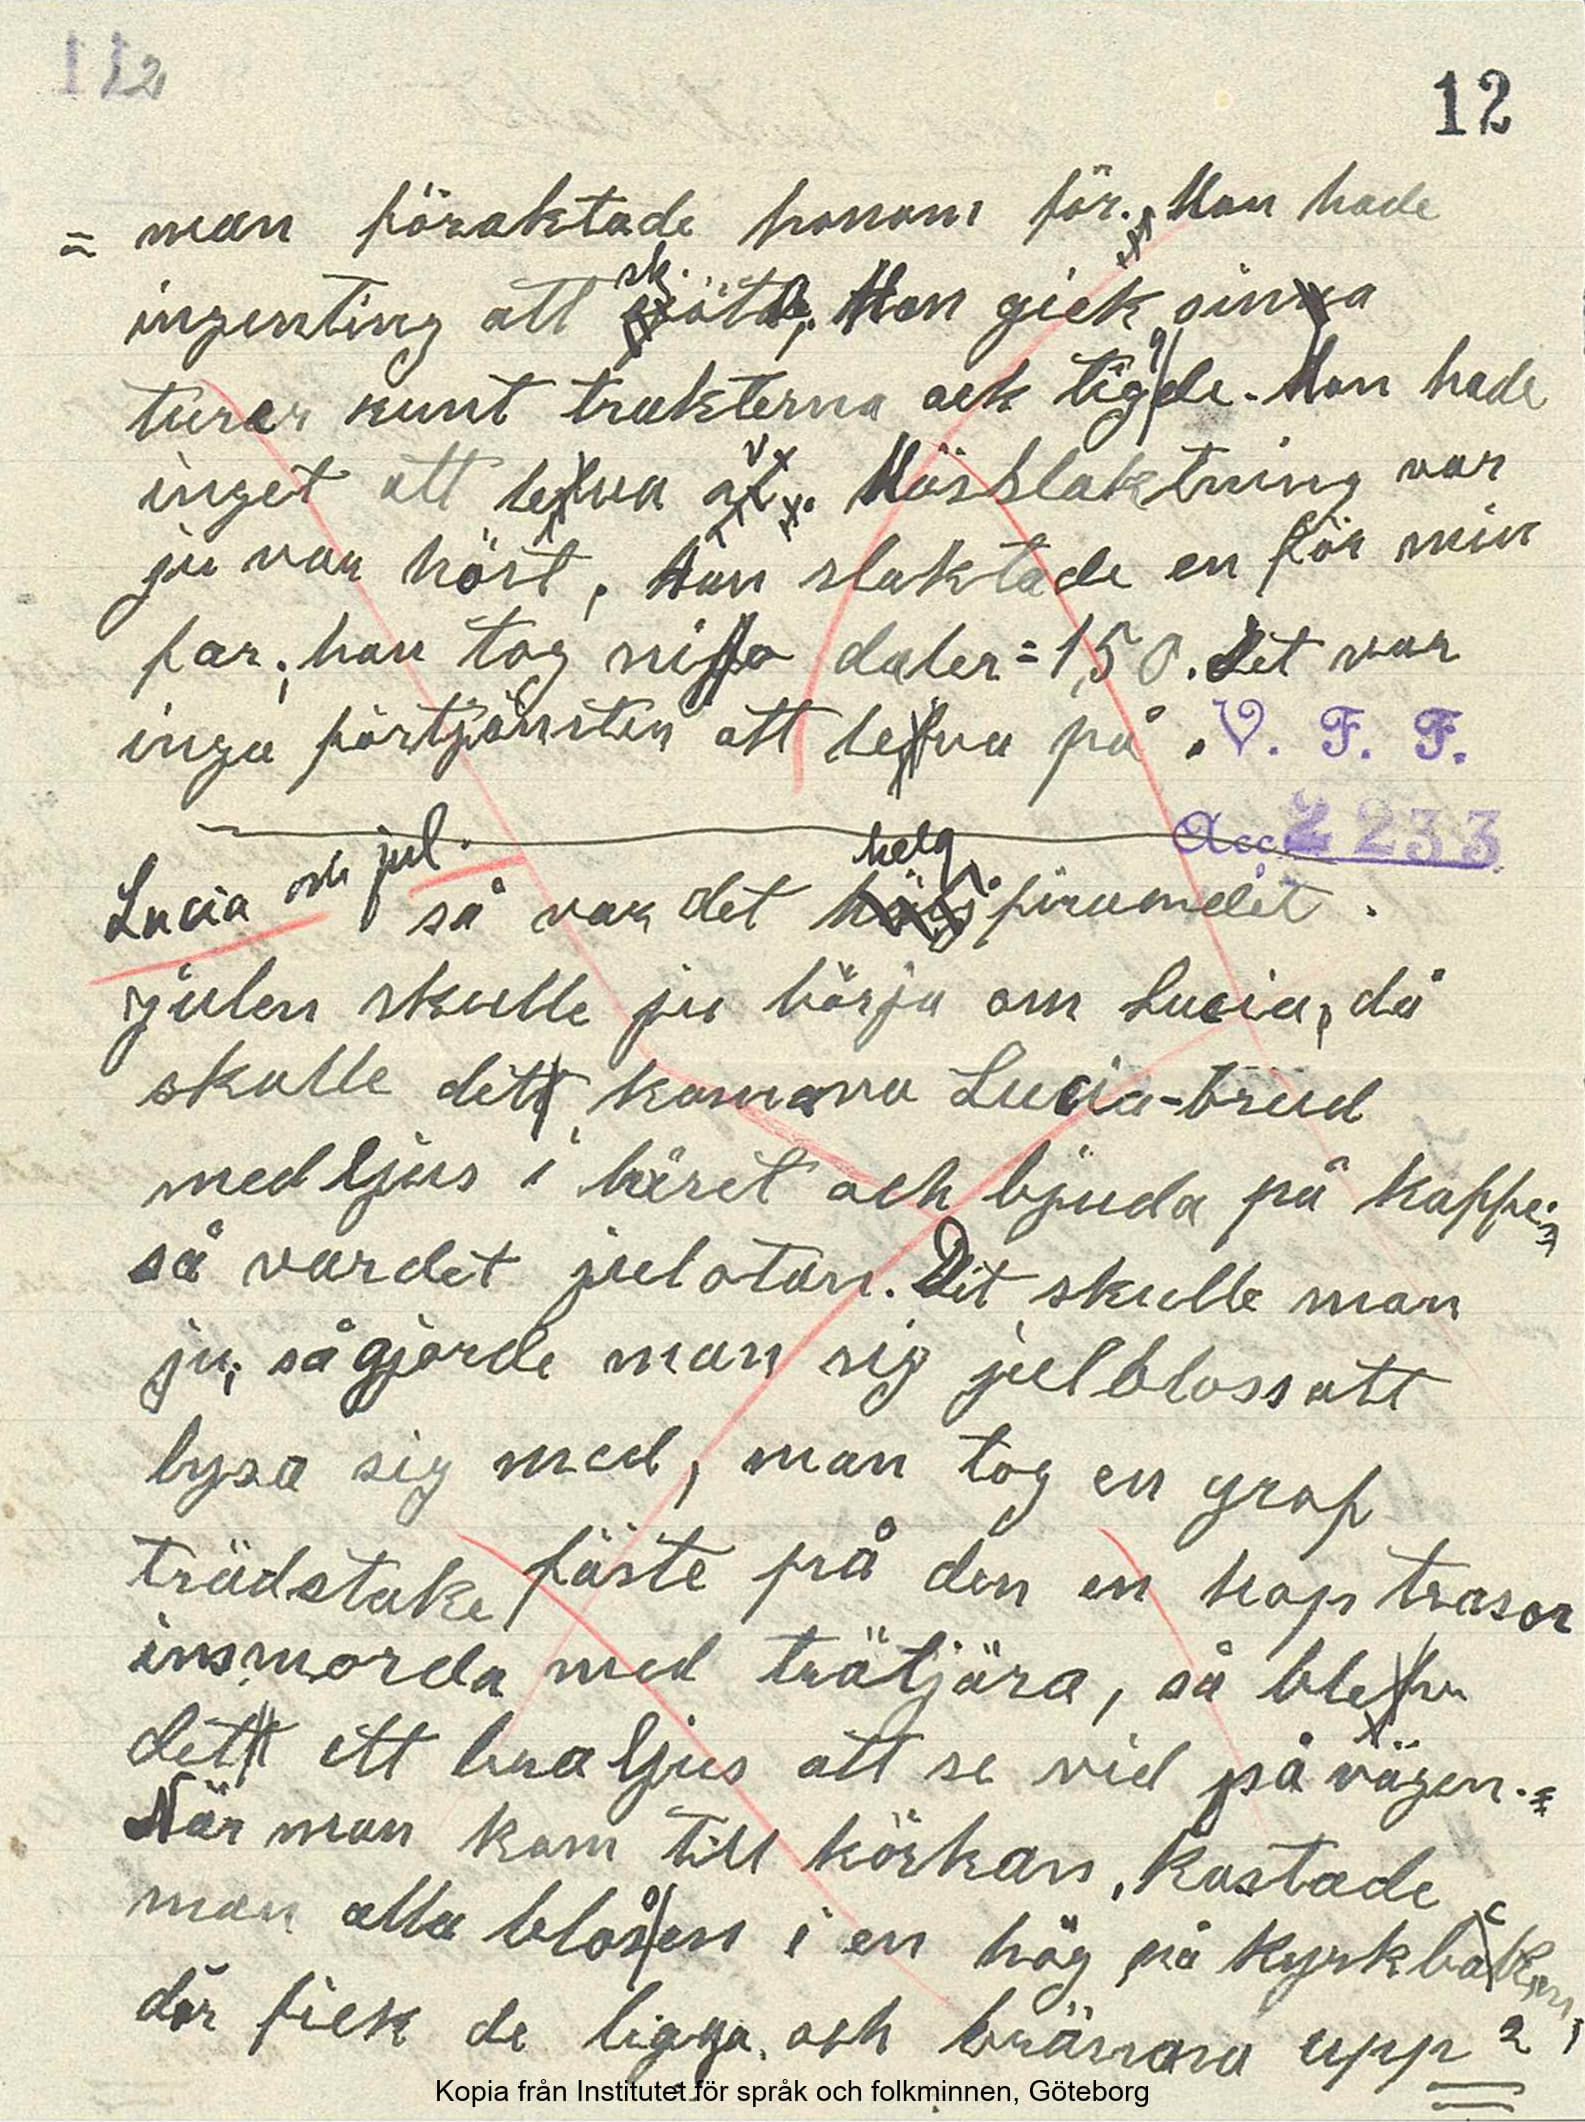 112
12
= man föraktade honom för. Han hade
ingenting att sköta, Han gick sina
turer runt trakterna ock tigde. Han hade
inget att leva av. Hösslaktning var
ju var höst, han slaktade en för min
far; han tog nio daler = 1,50. Det var
inga förtjänsten att leva på. V. F. F.
Acc. 2233
Lucia och jul.
så var det helgfirandet.
julen skulle ju börja om Lucia, då
skulle det komma Lucia-brud
med ljus i håret och bjuda på kaffe;
så var det julotan. Dit skulle man
ju; så gjorde man sig julbloss att
lysa sig med, man tog en grof
trädstake fäste på den en hop trasor
insmorda med trätjära, så blev
det ett bra ljus att se vid på vägen. =
När man kom till körkan, kastade
man alla blosen i en hög på kyrkbacken,
där fick de ligga och bränna upp 2
Kopia från Institutet för språk och folkminnen, Göteborg